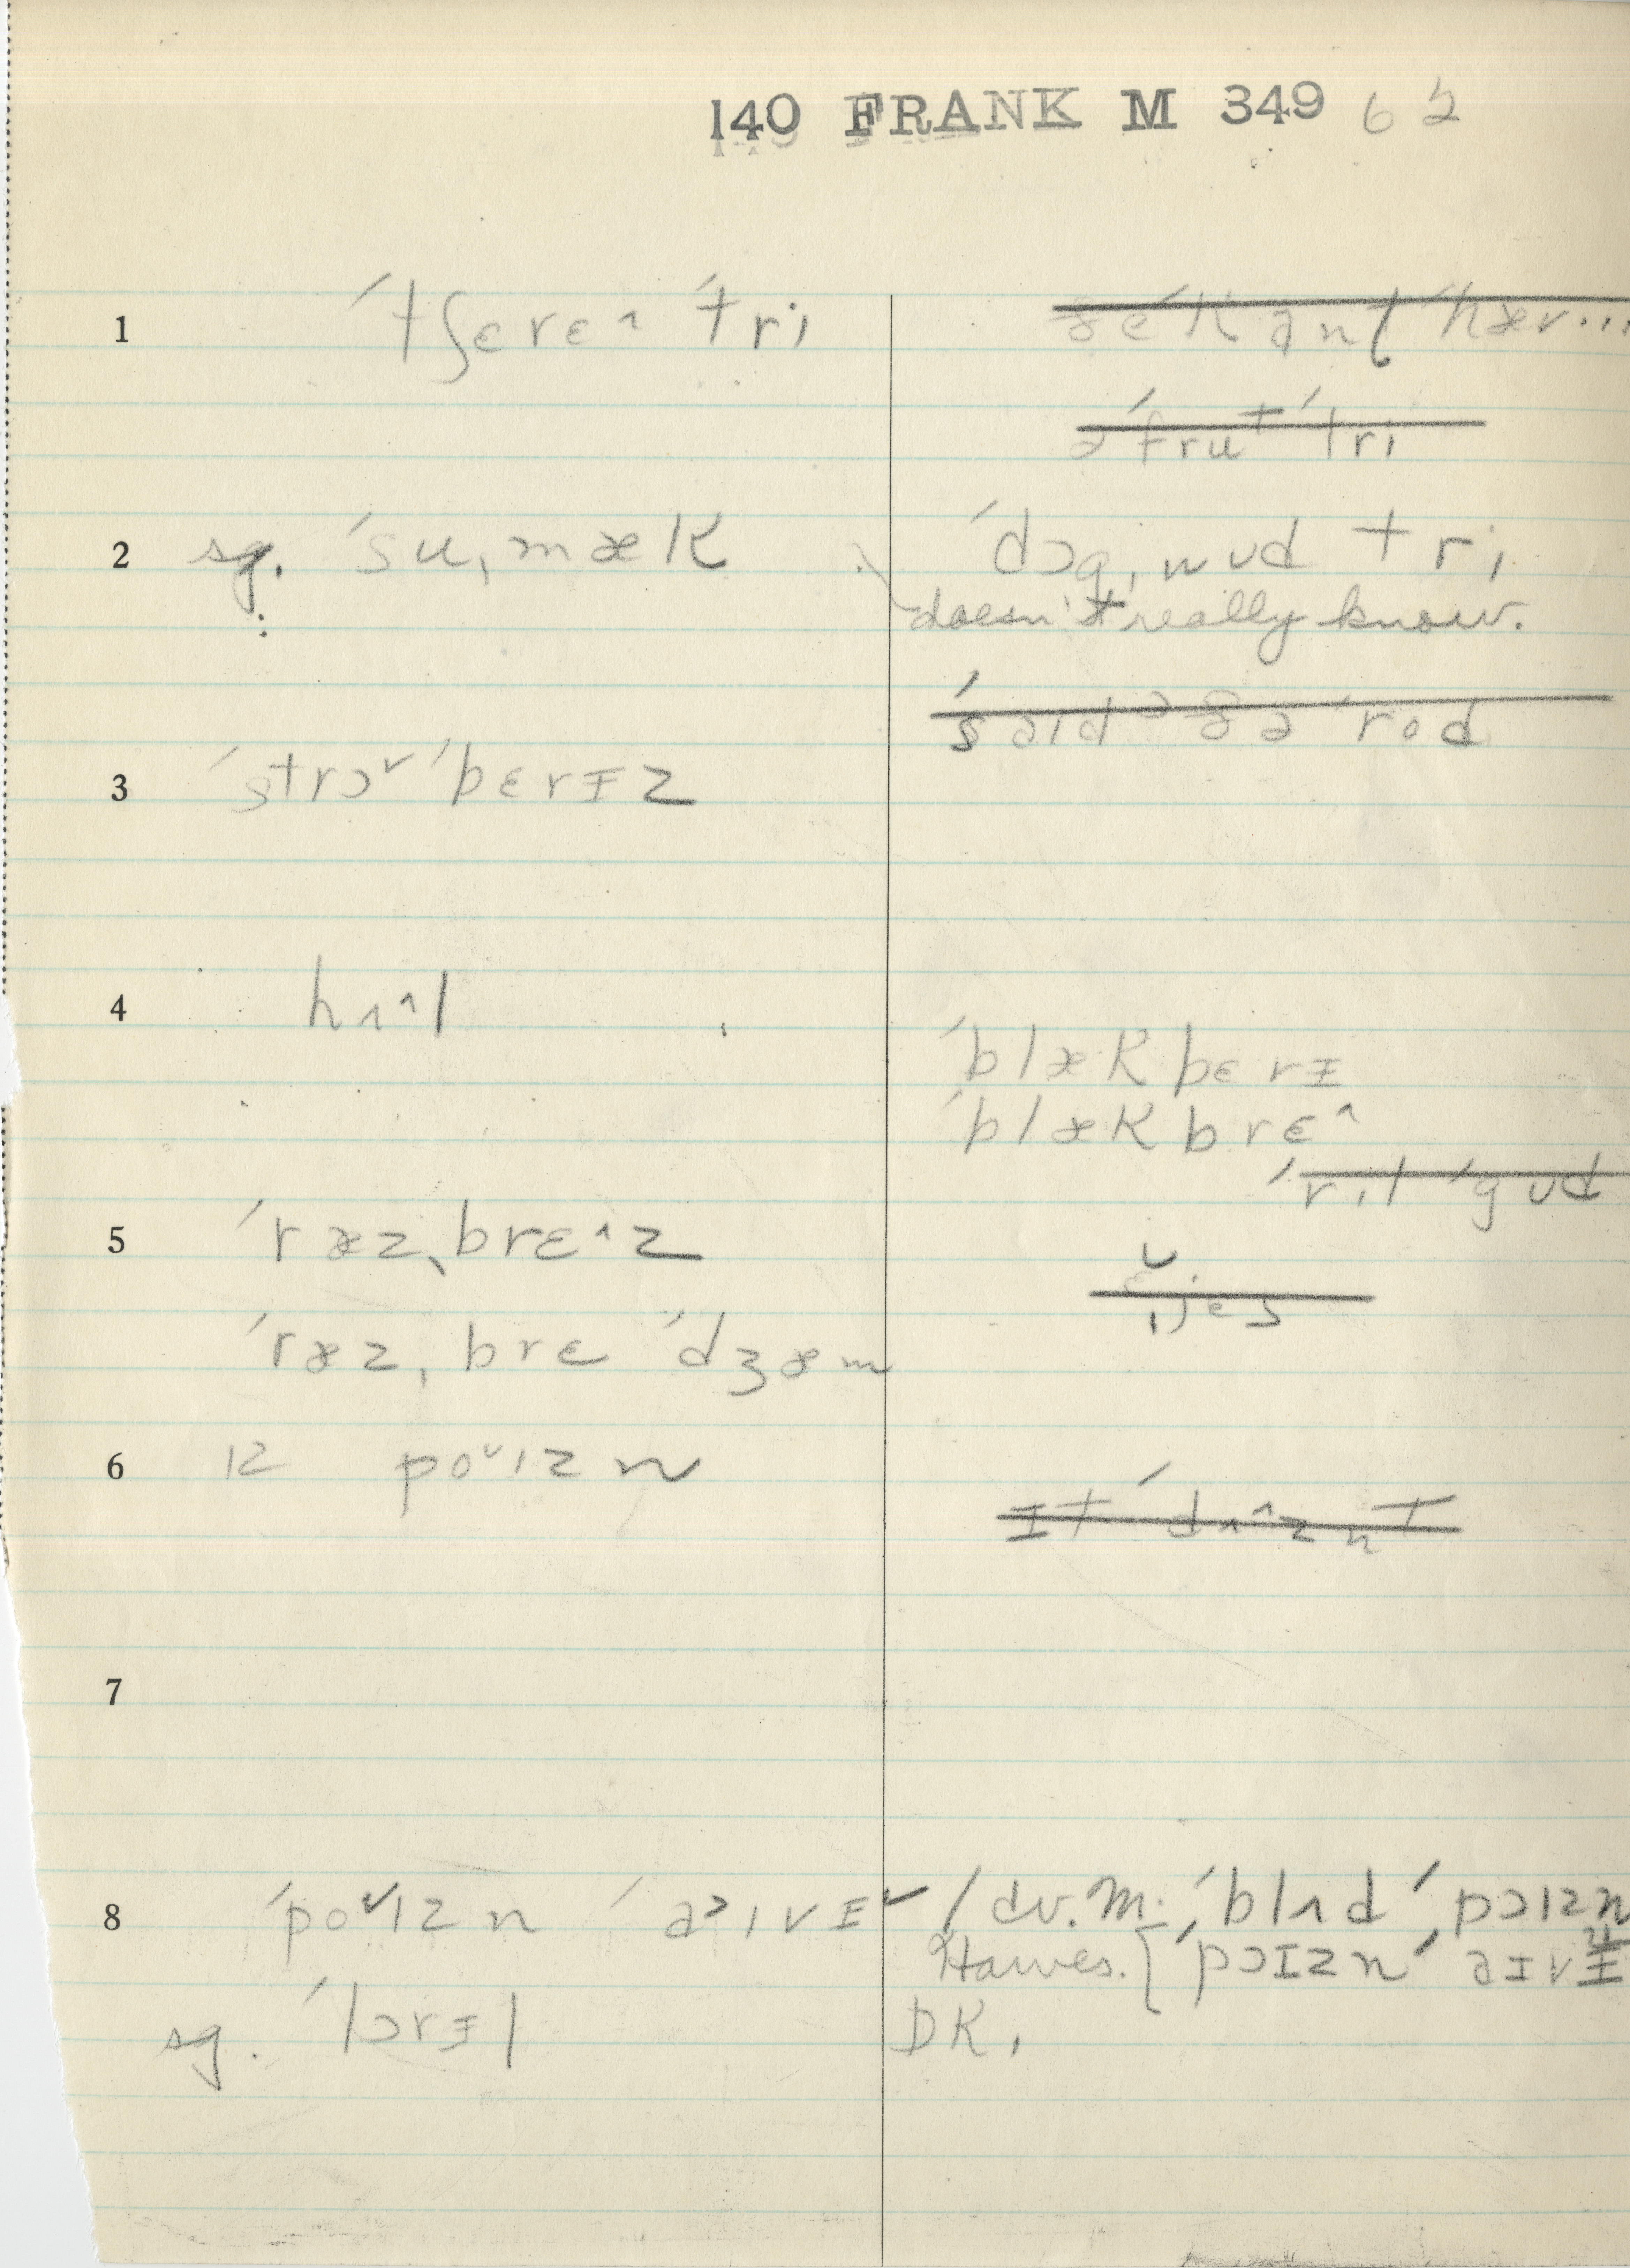 140 FRANK M 349 62
1 ˈtʃɛrɛ^ ˈtri ðe ˈkant ˈhæv...
ə ˈfrut ˈtri
2 sg. ˈsuˌmæk ˈdɔgˌwud tri
doesn't really know.
ˈsaɪd ə ðə ˈrod
3 ˈstrɔ˅ ˈbɛrɪz
4 hʌ^l
ˈblækbɛrɪ
ˈblækbrɛ^
ˈril ˈgud
5 ˈræzˌbrɛ^z
ˈræzˌbrɛ ˈdʒæm
6 ɪz po˅ɪzn
ɪt ˈdʌ^znt
7
8 ˈpo˅ɪzn ˈaɪvɪ˅ / dv. M. ˈblʌd ˈpɔɪzn
Hawes. [ˈpɔɪzn ˈaɪvɪ
sg. ˈlɔrɪl DK.